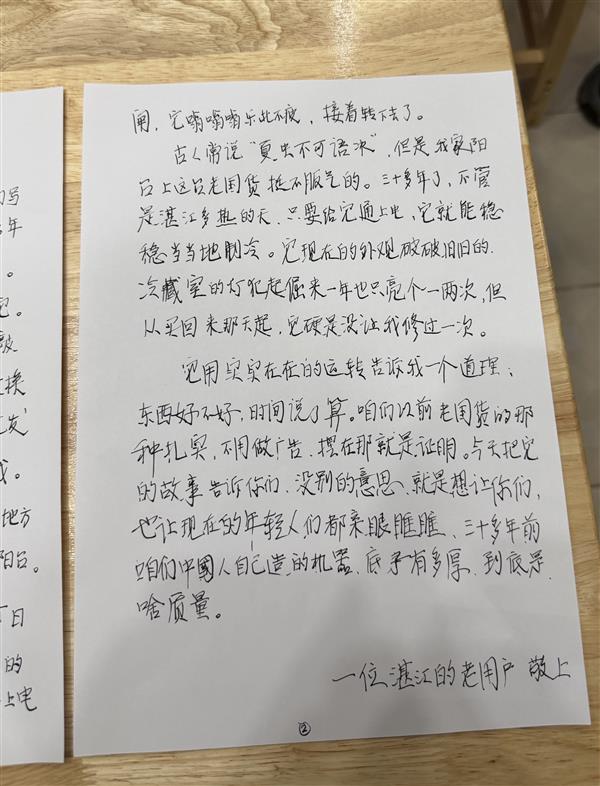 的写
年
。
它。
般
换
发'
我。
地方
阳台。
日
的
上电
闸，它嗡嗡嗡乐此不疲，接着转下去了。
古人常说“夏虫不可语冰”，但是我家阳
台上这台老国货挺不服气的。三十多年了，不管
是湛江多热的天，只要给它通上电，它就能稳
稳当当地制冷。它现在的外观破破旧旧的，
冷藏室的灯犯起倔来一年也只亮个一两次，但
从买回来那天起，它硬是没让我修过一次。
它用实实在在的运转告诉我一个道理：
东西好不好，时间说了算。咱们以前老国货的那
种扎实，不用做广告，摆在那就是证明。今天把它
的故事告诉你们，没别的意思，就是想让你们，
也让现在的年轻人们都来眼瞧瞧，三十多年前
咱们中國人自己造的机器，底子有多厚，到底是
啥质量。
一位湛江的老用户 敬上
②